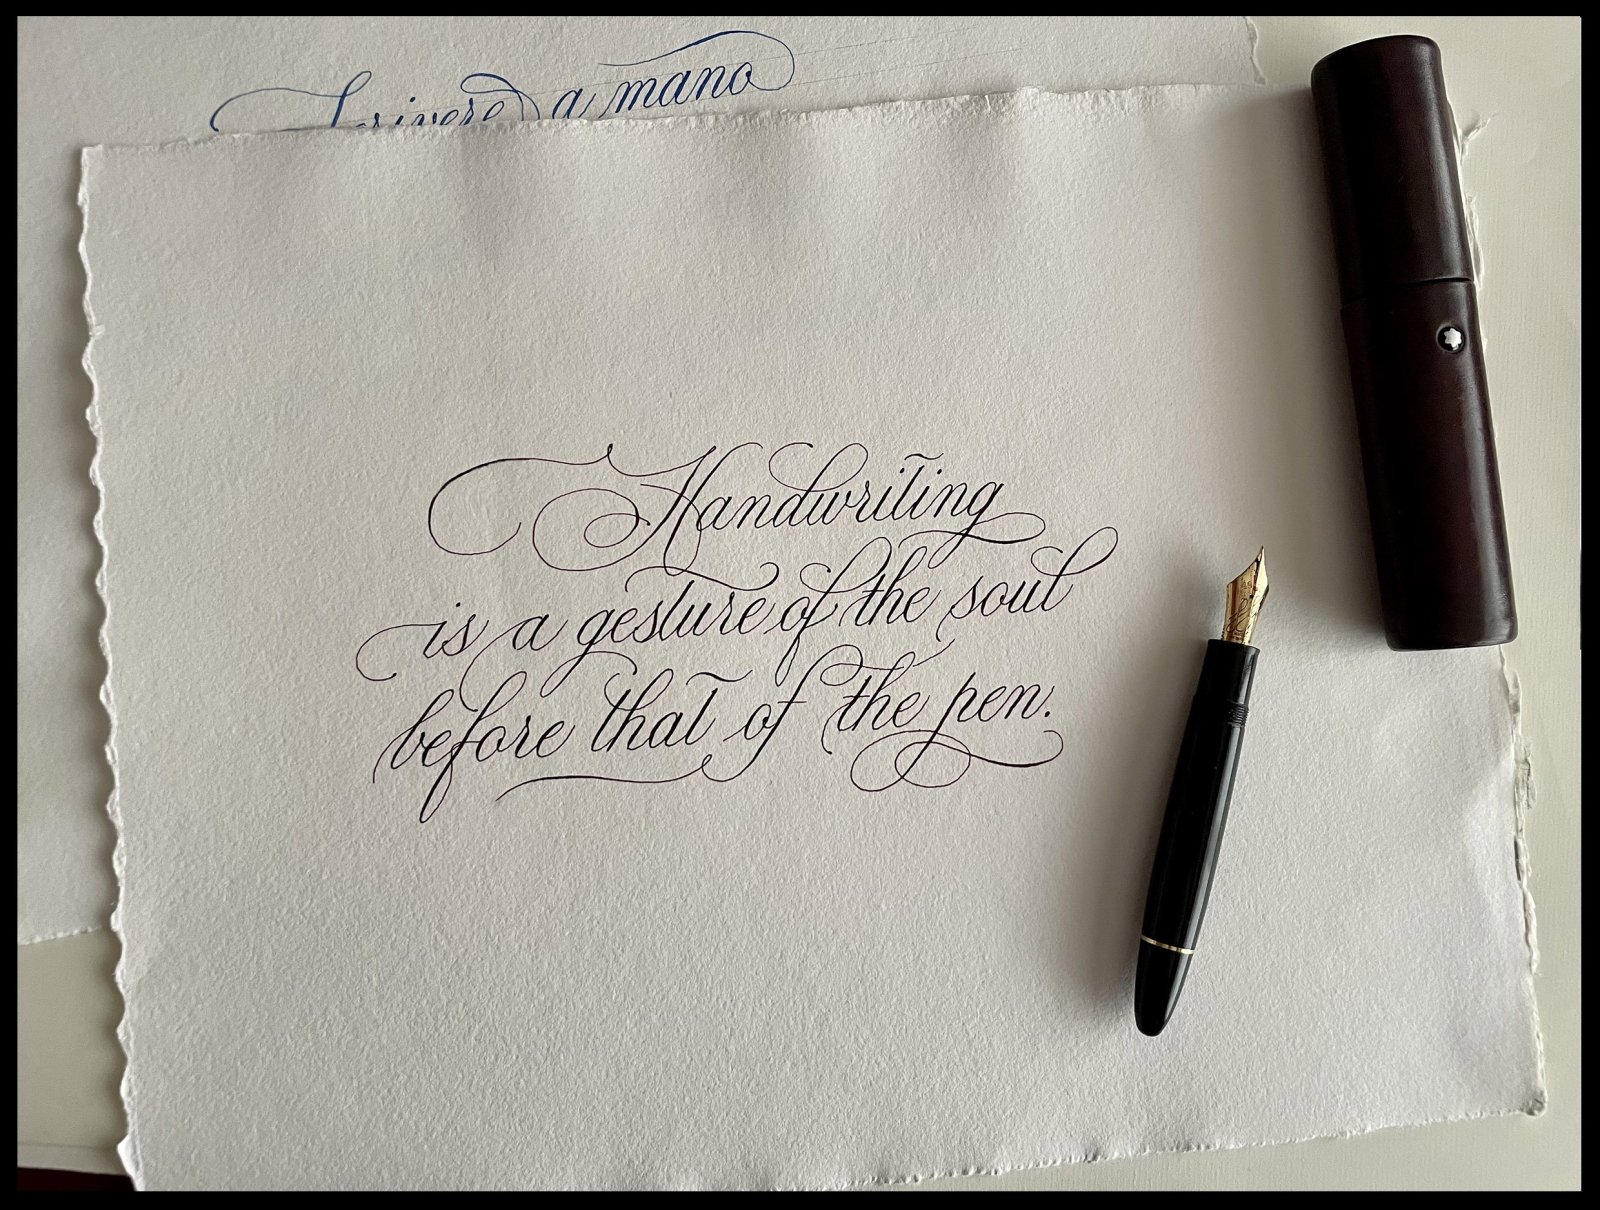 Scrivere a mano
Handwriting
is a gesture of the soul
before that of the pen.